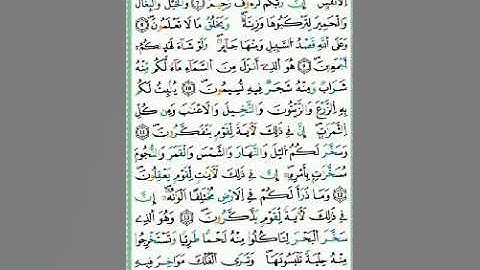 اَ۬لَانفُسِ إِنَّ رَبَّكُمْ لَرَءُوفٌ رَّحِيمٌ ۝ وَالْخَيْلَ وَالْبِغَالَ
وَالْحَمِيرَ لِتَرْكَبُوهَا وَزِينَةً وَيَخْلُقُ مَا لَا تَعْلَمُونَ ۝
وَعَلَى اَ۬للَّهِ قَصْدُ اُ۬لسَّبِيلِ وَمِنْهَا جَآئِرٌ وَلَوْ شَآءَ لَهَدٰىكُمُۥ
أَجْمَعِينَ ۝ هُوَ اَ۬لذِےٓ أَنزَلَ مِنَ اَ۬لسَّمَآءِ مَآءً لَّكُم مِّنْهُ
شَرَابٌ وَمِنْهُ شَجَرٌ فِيهِ تُسِيمُونَ ۝ يُنۢبِتُ لَكُم
بِهِ اِ۬لزَّرْعَ وَالزَّيْتُونَ وَالنَّخِيلَ وَالَاعْنَٰبَ وَمِن كُلِّ
اِ۬لثَّمَرَٰتِ إِنَّ فِے ذَٰلِكَ لَأٓيَةً لِّقَوْمٍ يَتَفَكَّرُونَ ۝
وَسَخَّرَ لَكُمُ اُ۬ليْلَ وَالنَّهَارَ وَالشَّمْسَ وَالْقَمَرَ وَالنُّجُومَ
مُسَخَّرَٰتِۢ بِأَمْرِهِۦٓ إِنَّ فِے ذَٰلِكَ لَأٓيَٰتٍ لِّقَوْمٍ يَعْقِلُونَ
۝ وَمَا ذَرَأَ لَكُمْ فِے اِ۬لَارْضِ مُخْتَلِفاً اَلْوَٰنُهُۥٓ إِنَّ
فِے ذَٰلِكَ لَأٓيَةً لِّقَوْمٍ يَذَّكَّرُونَ ۝ وَهُوَ اَ۬لذِے
سَخَّرَ اَ۬لْبَحْرَ لِتَاكُلُواْ مِنْهُ لَحْماً طَرِيّاً وَتَسْتَخْرِجُواْ
مِنْهُ حِلْيَةً تَلْبَسُونَهَا وَتَرَى اَ۬لْفُلْكَ مَوَاخِرَ فِيهِ